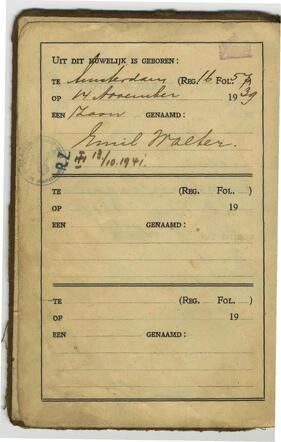 UIT DIT HUWELIJK IS GEBOREN:
TE Amsterdam (REG. 16 FOL. 57
OP 14 November 1939
EEN Zoon GENAAMD:
Emil Walter.
18/10.1941.
TE (REG. FOL. )
OP 19
EEN GENAAMD:
TE (REG. FOL. )
OP 19
EEN GENAAMD: